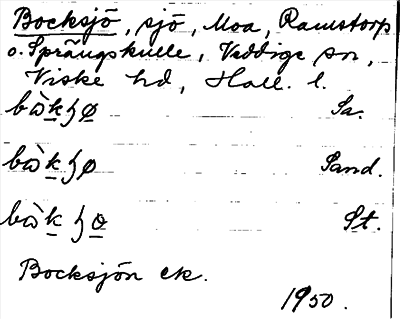 Bocksjö, sjö, Moa, Ramstorp
o. Sprängskulle, Veddige sn,
Viske hd, Hall. l.
bòkʂø Sa.
bòkʂø Sand.
bòkʂo St.
Bocksjön ek.
1950.